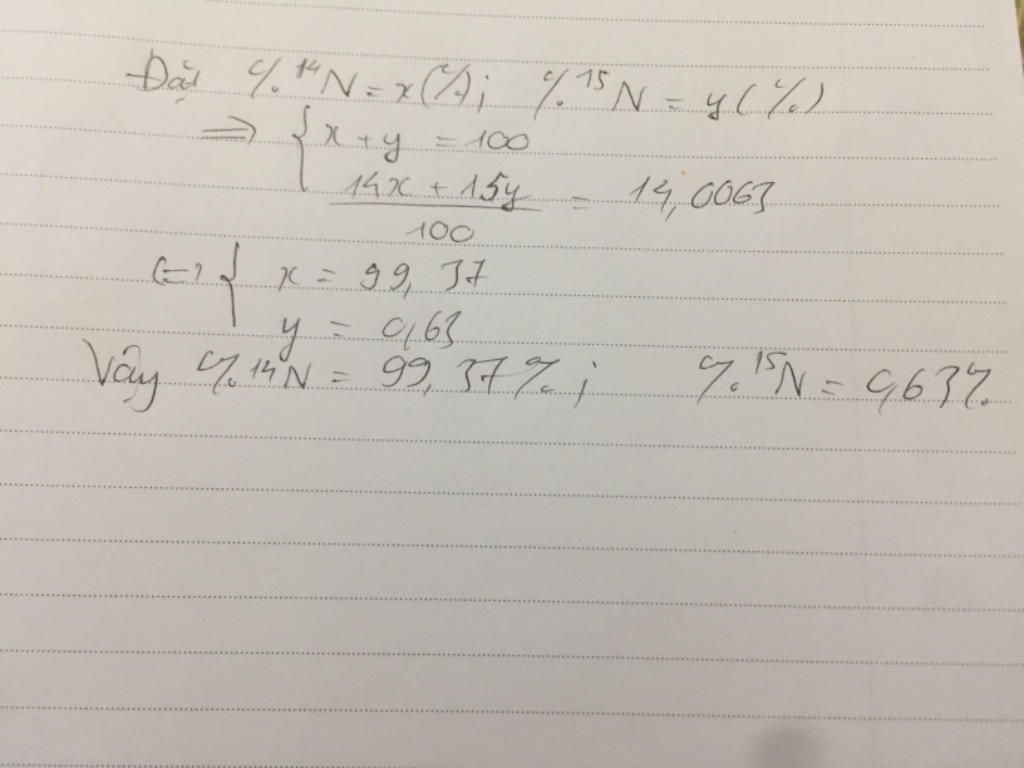 Đặt % ¹⁴N = x(%); % ¹⁵N = y(%)
⇒ { x + y = 100
14x + 15y / 100 = 14,0063
⇔ { x = 99,37
y = 0,63
Vậy % ¹⁴N = 99,37%; % ¹⁵N = 0,63%